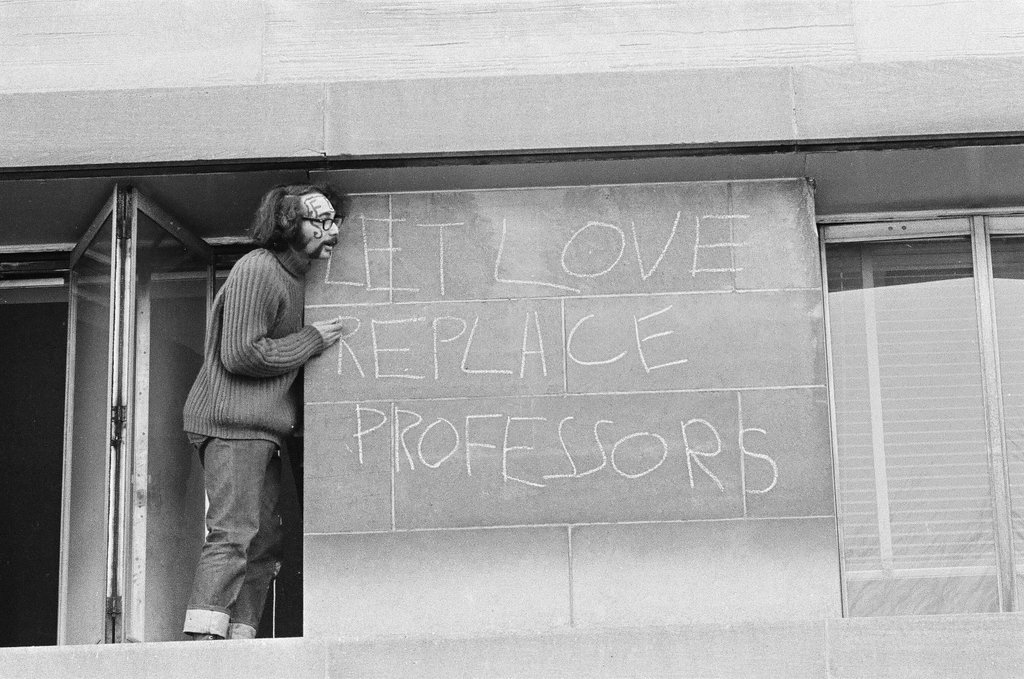 LET LOVE
REPLACE
PROFESSORS